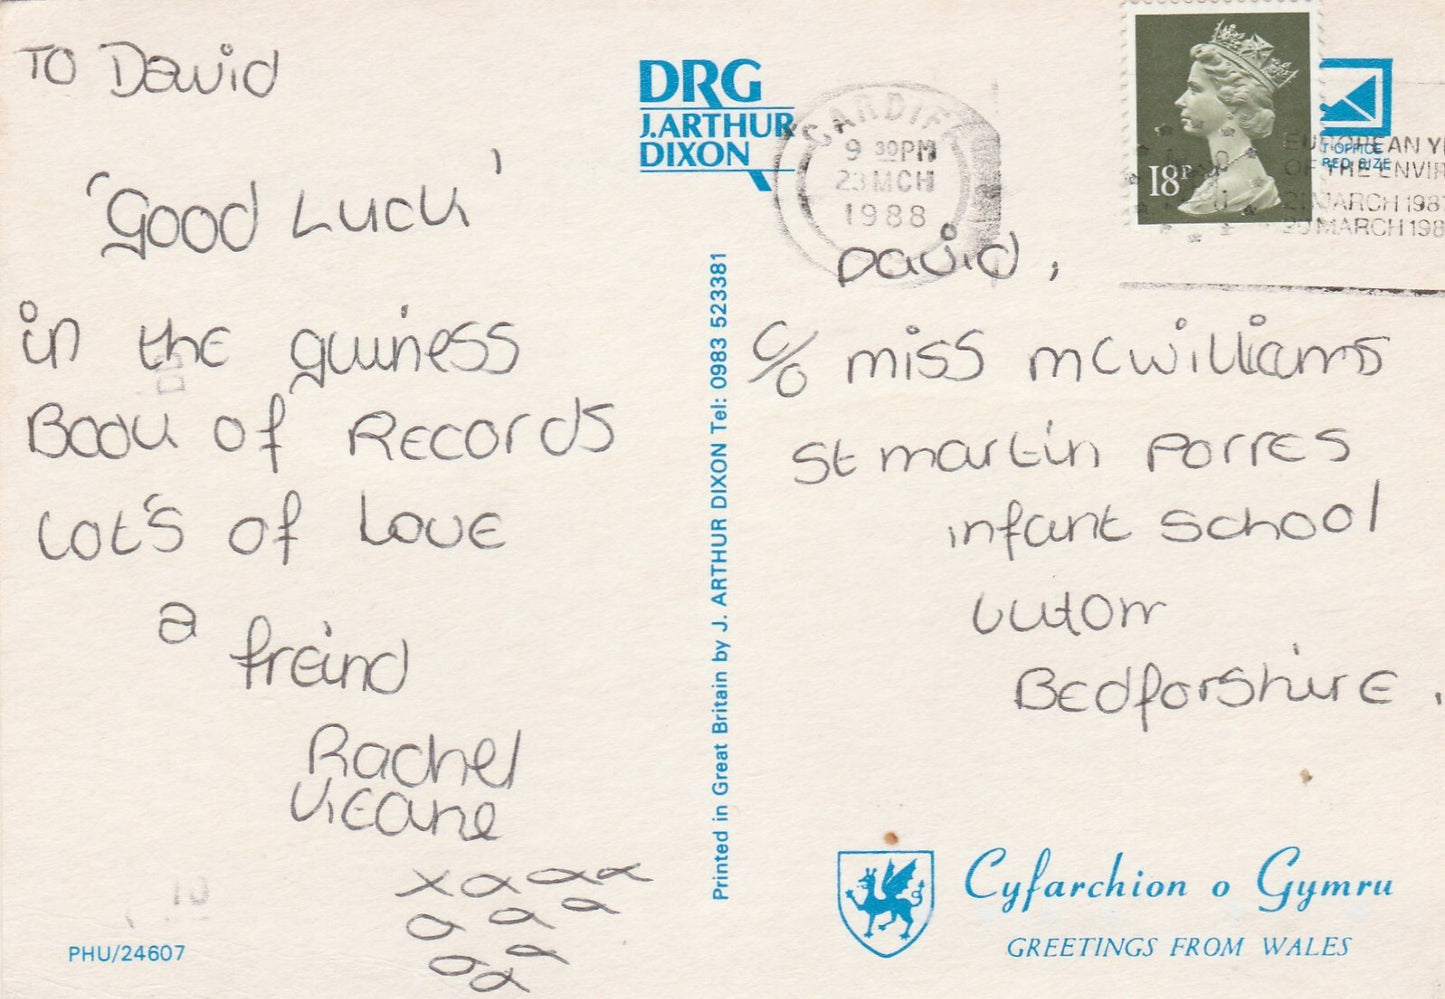 TO David
'Good Luck'
in the guiness
Book of Records
Lot's of Love
a freind
Rachel
xxxx
xx
xx
xx
PHU/24607
DRG
J.ARTHUR
DIXON
Printed in Great Britain by J. ARTHUR DIXON Tel: 0983 523381
CARDIFF
9 30PM
23 MCH
1988
18P
T·OFFICE
RED SIZE
EUROPEAN Y
OF THE ENVIR
21 MARCH 198
20 MARCH 198
David,
c/o miss mcwilliams
St martin Porres
infant School
Luton
Bedforshire.
Cyfarchion o Gymru
GREETINGS FROM WALES